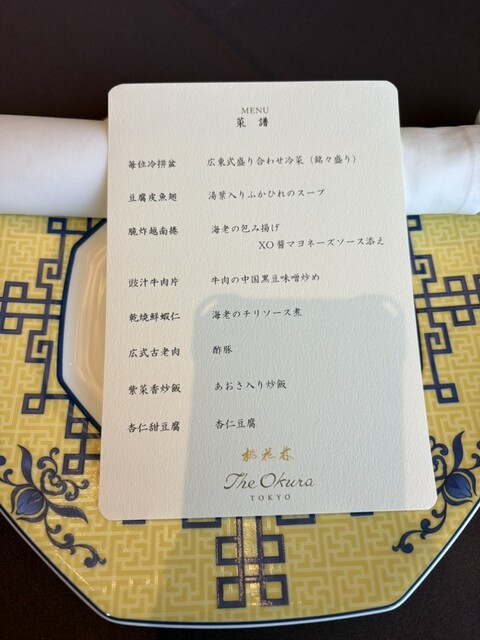 MENU
菜 譜
毎位冷拼盆 広東式盛り合わせ冷菜（銘々盛り）
豆腐皮魚翅 湯葉入りふかひれのスープ
脆炸越南捲 海老の包み揚げ
XO醤マヨネーズソース添え
豉汁牛肉片 牛肉の中国黒豆味噌炒め
乾焼鮮蝦仁 海老のチリソース煮
広式古老肉 酢豚
紫菜香炒飯 あおさ入り炒飯
杏仁甜豆腐 杏仁豆腐
桃花林
The Okura
TOKYO